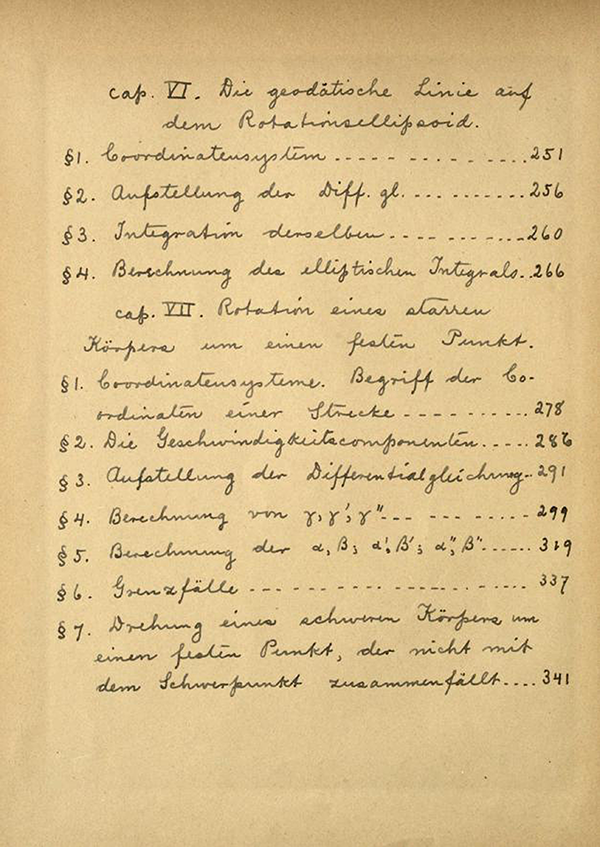 cap. VI. Die geodätische Linie auf
dem Rotationsellipsoid.
§1. Coordinatensystem ........ 251
§2. Aufstellung der Diff. gl. ........ 256
§3. Integration derselben ........ 260
§4. Berechnung des elliptischen Integrals.. 266
cap. VII. Rotation eines starren
Körpers um einen festen Punkt.
§1. Coordinatensysteme. Begriff der Co-
ordinaten einer Strecke ........ 278
§2. Die Geschwindigkeitscomponenten..... 286
§3. Aufstellung der Differentialgleichung.. 291
§4. Berechnung von γ, γ', γ" ........ 299
§5. Berechnung der α, β; α', β'; α", β"...... 319
§6. Grenzfälle ........ 337
§7. Drehung eines schweren Körpers um
einen festen Punkt, der nicht mit
dem Schwerpunkt zusammenfällt.... 341